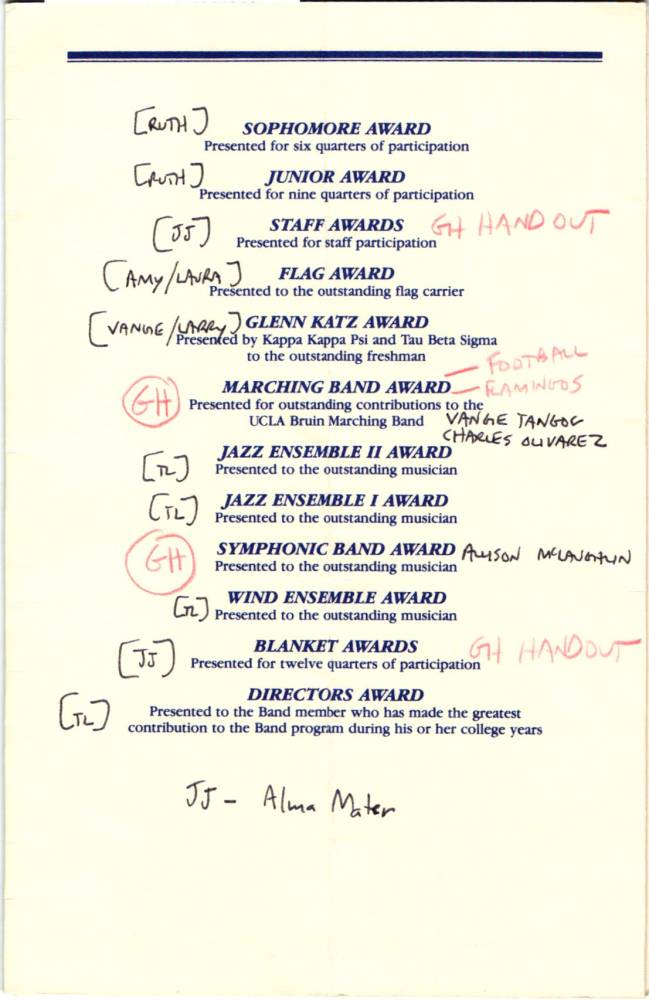 [RUTH] SOPHOMORE AWARD
Presented for six quarters of participation
[RUTH] JUNIOR AWARD
Presented for nine quarters of participation
[JJ] STAFF AWARDS GH HANDOUT
Presented for staff participation
[AMY/LAURA] FLAG AWARD
Presented to the outstanding flag carrier
[VANGIE/LARRY] GLENN KATZ AWARD
Presented by Kappa Kappa Psi and Tau Beta Sigma
to the outstanding freshman
— FOOTBALL
MARCHING BAND AWARD — FLAMINGOS
GH Presented for outstanding contributions to the
UCLA Bruin Marching Band VANGIE TANGOG
CHARLES OLIVAREZ
JAZZ ENSEMBLE II AWARD
[TL] Presented to the outstanding musician
[TL] JAZZ ENSEMBLE I AWARD
Presented to the outstanding musician
GH SYMPHONIC BAND AWARD ALLISON MCLAUGHLIN
Presented to the outstanding musician
[TL] WIND ENSEMBLE AWARD
Presented to the outstanding musician
[JJ] BLANKET AWARDS GH HANDOUT
Presented for twelve quarters of participation
[TL] DIRECTORS AWARD
Presented to the Band member who has made the greatest
contribution to the Band program during his or her college years
JJ - Alma Mater